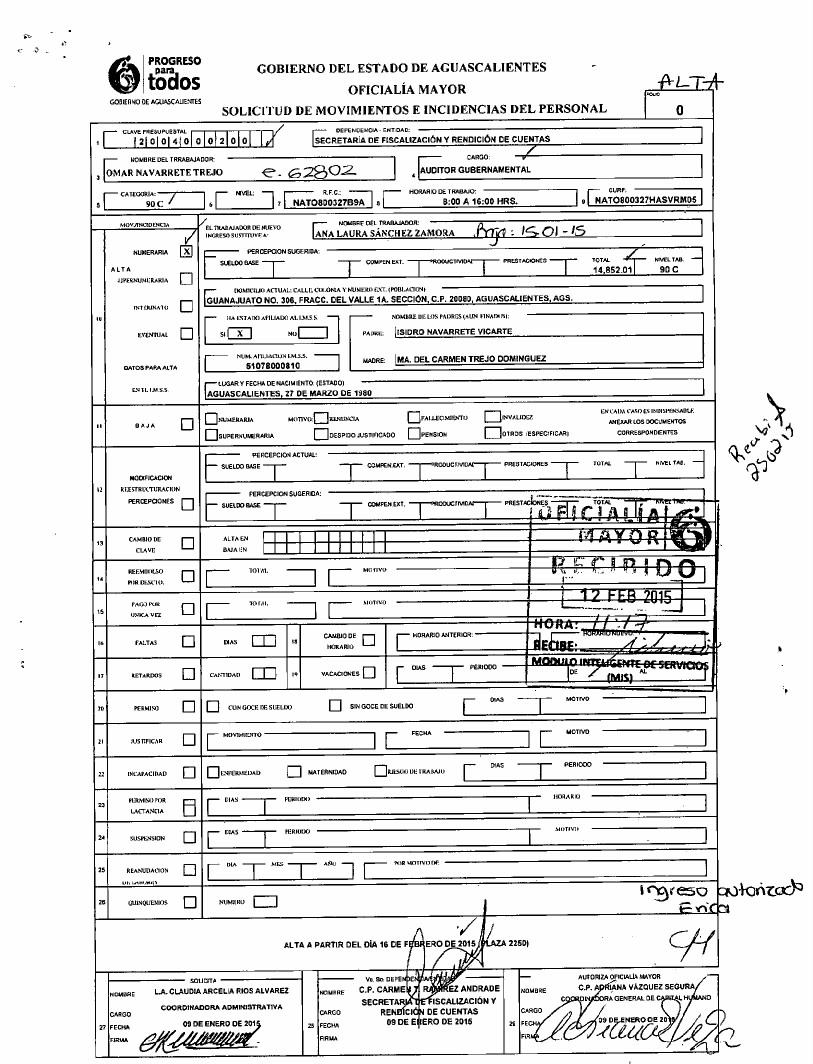 PROGRESO
para
todos
GOBIERNO DE AGUASCALIENTES
GOBIERNO DEL ESTADO DE AGUASCALIENTES
OFICIALÍA MAYOR
SOLICITUD DE MOVIMIENTOS E INCIDENCIAS DEL PERSONAL
ALTA
FOLIO
0
CLAVE PRESUPUESTAL
DEPENDENCIA - ENTIDAD:
1 1 2 0 0 4 0 0 0 2 0 0
SECRETARÍA DE FISCALIZACIÓN Y RENDICIÓN DE CUENTAS
NOMBRE DEL TRRABAJADOR:
CARGO:
3 OMAR NAVARRETE TREJO e. 62802
4 AUDITOR GUBERNAMENTAL
CATEGORIA: NIVEL: R.F.C.: HORARIO DE TRABAJO: CURP.
5 90 C 6 7 NATO800327B9A 8 8:00 A 16:00 HRS. 9 NATO800327HASVRM05
MOV./INCIDENCIA
EL TRABAJADOR DE NUEVO
INGRESO SUSTITUYE A:
NOMBRE DEL TRABAJADOR:
ANA LAURA SÁNCHEZ ZAMORA Baja: 15-01-15
NUMERARIA X
PERCEPCION SUGERIDA:
SUELDO BASE COMPEN.EXT. PRODUCTIVIDAD PRESTACIONES TOTAL NIVEL TAB.
14,852.01 90 C
ALTA
SUPERNUMERARIA
DOMICILIO ACTUAL: CALLE, COLONIA Y NUMERO EXT. (POBLACION)
GUANAJUATO NO. 306, FRACC. DEL VALLE 1A. SECCIÓN, C.P. 20080, AGUASCALIENTES, AGS.
INTERINATO
10
HA ESTADO AFILIADO AL I.M.S.S.
NOMBRE DE LOS PADRES (AUN FINADOS):
EVENTUAL
SI X NO
PADRE: ISIDRO NAVARRETE VICARTE
NUM. AFILIACION I.M.S.S.
51078000810
MADRE: MA. DEL CARMEN TREJO DOMINGUEZ
DATOS PARA ALTA
EN EL I.M.S.S.
LUGAR Y FECHA DE NACIMIENTO: (ESTADO)
AGUASCALIENTES, 27 DE MARZO DE 1980
11 BAJA
NUMERARIA MOTIVO: RENUNCIA FALLECIMIENTO INVALIDEZ
SUPERNUMERARIA DESPIDO JUSTIFICADO PENSION OTROS (ESPECIFICAR)
EN CADA CASO ES INDISPENSABLE
ANEXAR LOS DOCUMENTOS
CORRESPONDIENTES
250215
PERCEPCION ACTUAL:
SUELDO BASE COMPEN.EXT. PRODUCTIVIDAD PRESTACIONES TOTAL NIVEL TAB.
MODIFICACION
12 REESTRUCTURACION
PERCEPCIONES
PERCEPCION SUGERIDA:
SUELDO BASE COMPEN.EXT. PRODUCTIVIDAD PRESTACIONES TOTAL NIVEL TAB.
OFICIALÍA
MAYOR
RECIBIDO
12 FEB 2015
HORA: 11:17
RECIBE:
MODULO INTELIGENTE DE SERVICIOS
(MIS)
13 CAMBIO DE
CLAVE
ALTA EN
BAJA EN
14 REEMBOLSO
POR DESCTO.
TOTAL MOTIVO
15 PAGO POR
UNICA VEZ
TOTAL MOTIVO
16 FALTAS DIAS 18 CAMBIO DE
HORARIO
HORARIO ANTERIOR: HORARIO NUEVO
17 RETARDOS CANTIDAD 19 VACACIONES DIAS PERIODO
DE AL
20 PERMISO CON GOCE DE SUELDO SIN GOCE DE SUELDO DIAS MOTIVO
21 JUSTIFICAR MOVIMIENTO FECHA MOTIVO
22 INCAPACIDAD ENFERMEDAD MATERNIDAD RIESGO DE TRABAJO DIAS PERIODO
23 PERMISO POR
LACTANCIA
DIAS PERIODO HORARIO
24 SUSPENSION DIAS PERIODO MOTIVO
25 REANUDACION
DE LABORES
DIA MES AÑO POR MOTIVO DE
26 QUINQUENIOS NUMERO
Ingreso autorizado
Erica
ALTA A PARTIR DEL DÍA 16 DE FEBRERO DE 2015 (PLAZA 2250)
SOLICITA
NOMBRE L.A. CLAUDIA ARCELIA RIOS ALVAREZ
CARGO COORDINADORA ADMINISTRATIVA
27 FECHA 09 DE ENERO DE 2015
FIRMA
Vo. Bo. DEPENDENCIA
NOMBRE C.P. CARMEN T. RAMÍREZ ANDRADE
CARGO SECRETARIA DE FISCALIZACIÓN Y
RENDICIÓN DE CUENTAS
28 FECHA 09 DE ENERO DE 2015
FIRMA
AUTORIZA OFICIALÍA MAYOR
NOMBRE C.P. ADRIANA VÁZQUEZ SEGURA
CARGO COORDINADORA GENERAL DE CAPITAL HUMANO
29 FECHA 09 DE ENERO DE 2015
FIRMA